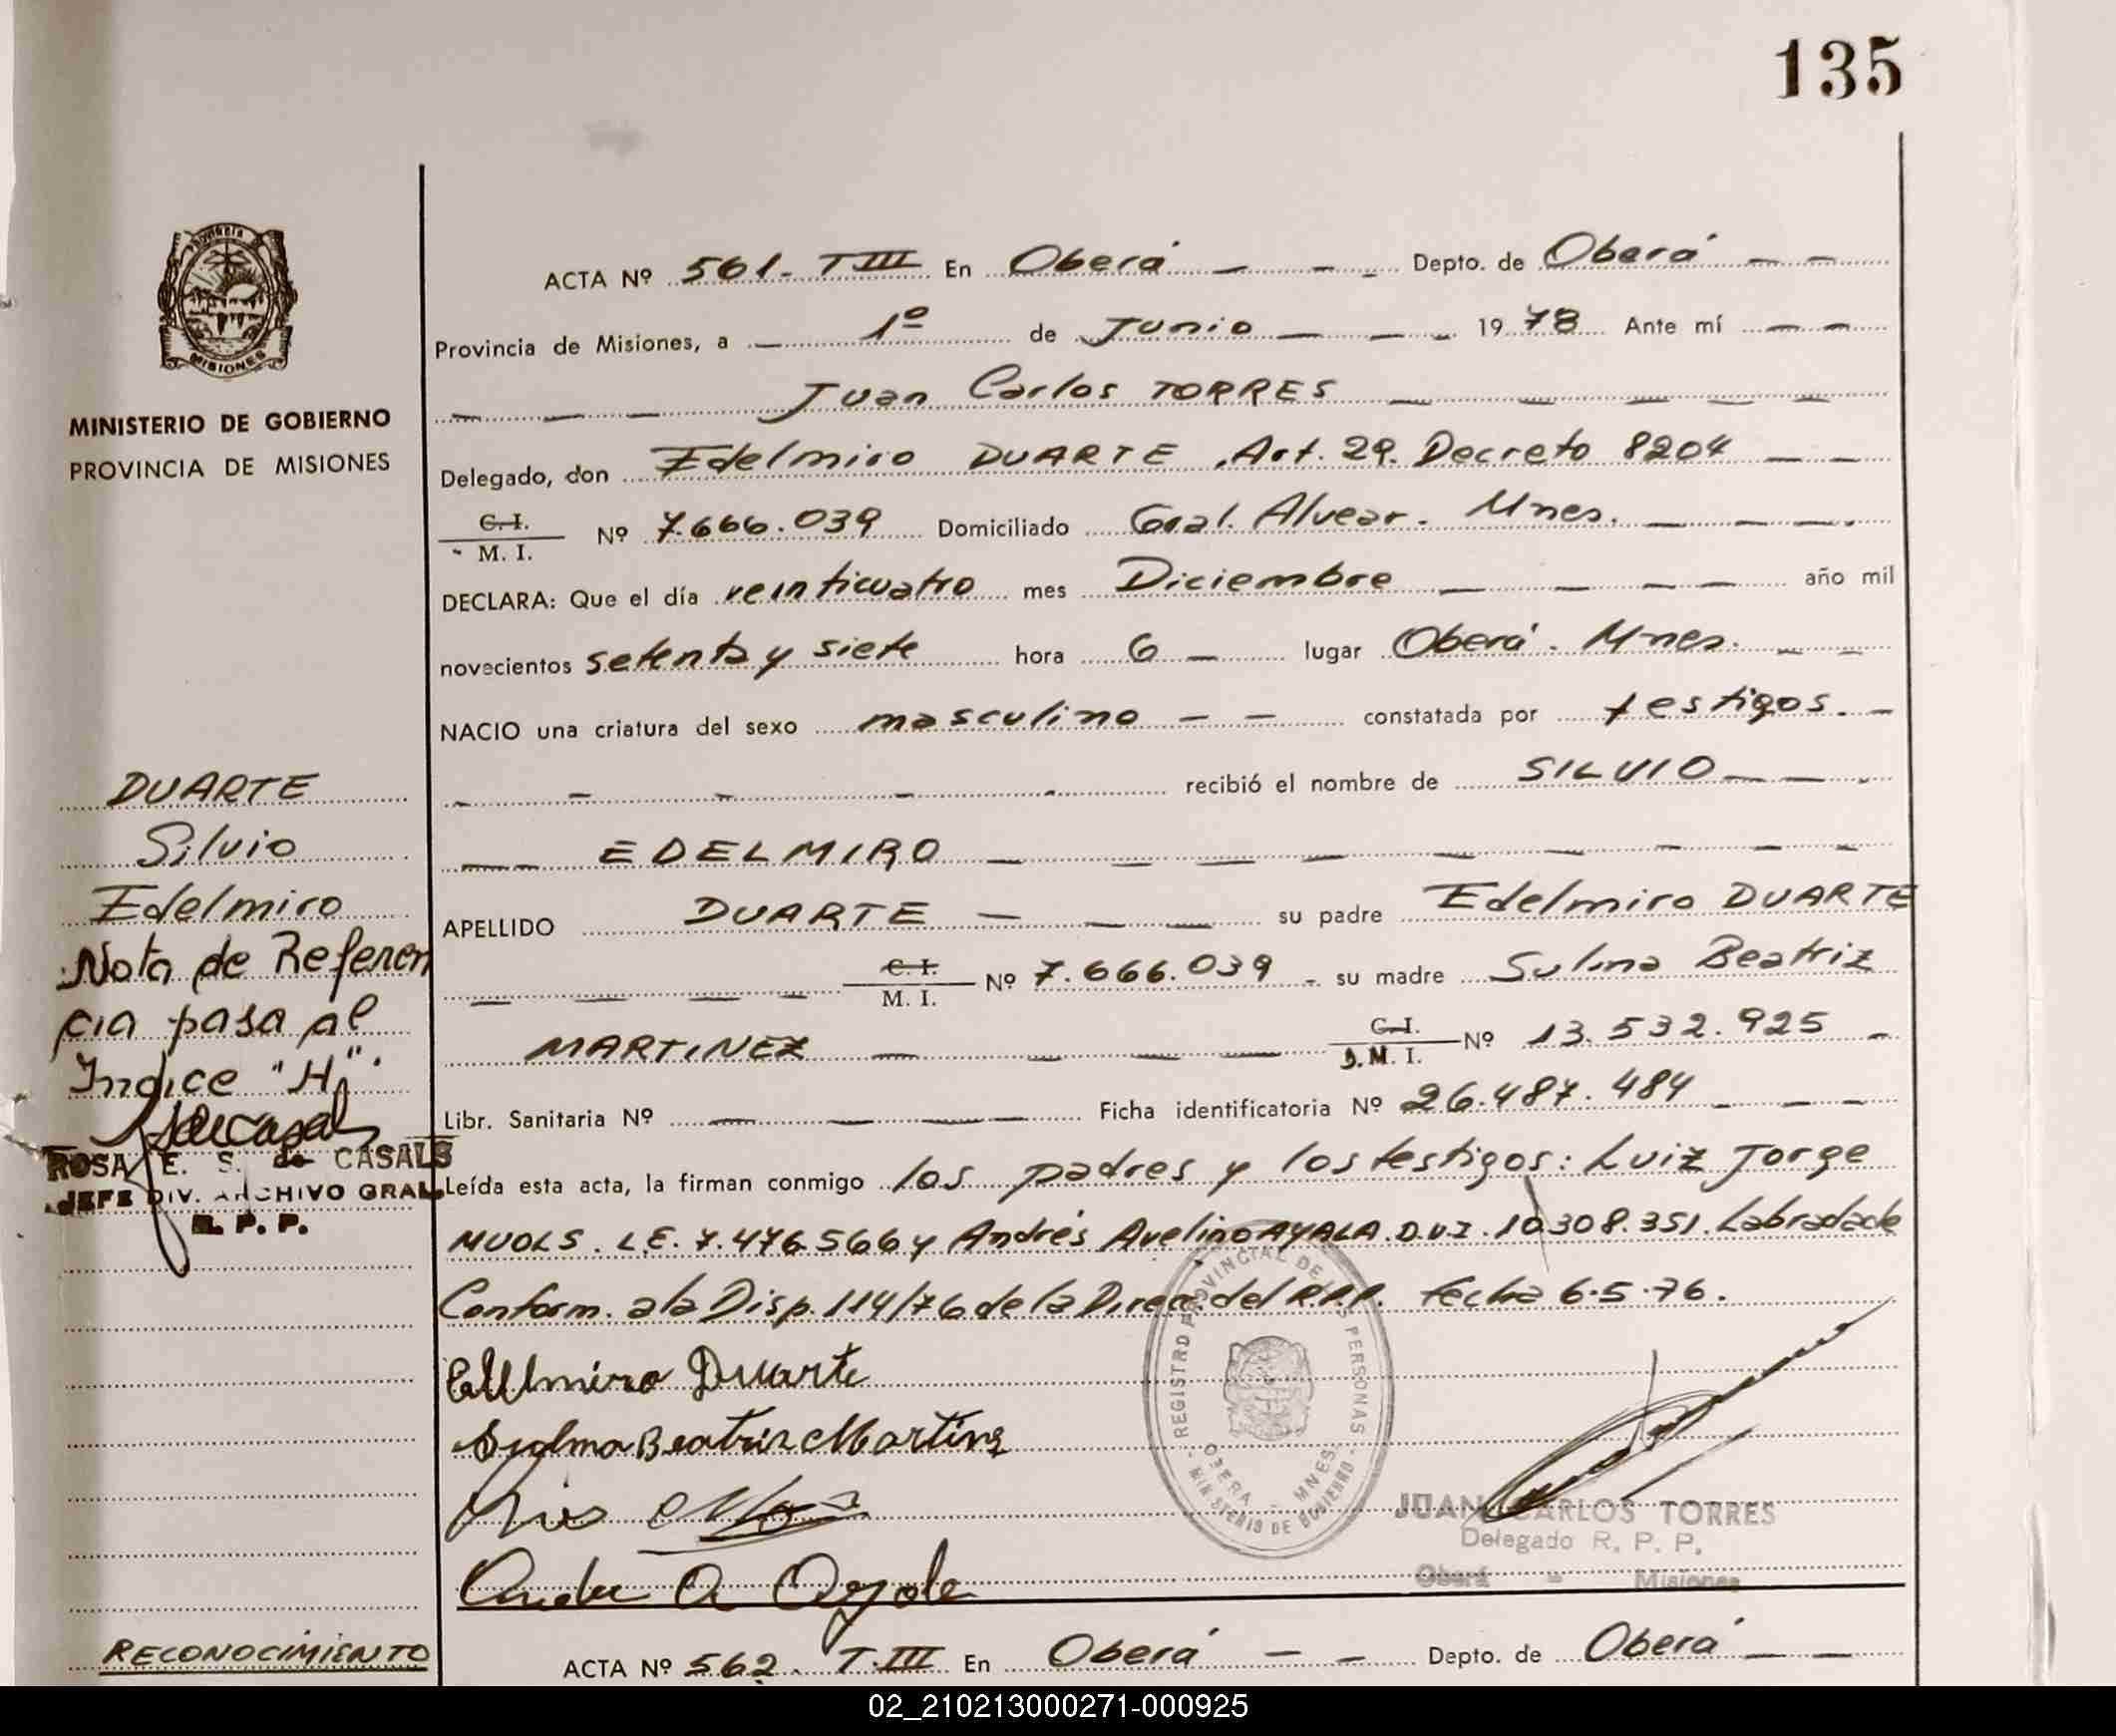 135
PROVINCIA
MISIONES
MINISTERIO DE GOBIERNO
PROVINCIA DE MISIONES
ACTA Nº 561. T III En Oberá Depto. de Oberá
Provincia de Misiones, a 1º de Junio 1978 Ante mí
Juan Carlos TORRES
Delegado, don Edelmiro DUARTE, Art. 29. Decreto 8204
C. I.
M. I. Nº 7.666.039 Domiciliado Gral. Alvear. Mnes.
DECLARA: Que el día veinticuatro mes Diciembre año mil
novecientos setenta y siete hora 6 lugar Oberá. Mnes.
NACIO una criatura del sexo masculino constatada por testigos.
recibió el nombre de SILVIO
EDELMIRO
APELLIDO DUARTE su padre Edelmiro DUARTE
C. I.
M. I. Nº 7.666.039 su madre Sulma Beatriz
MARTINEZ C. I. Nº 13.532.925
D. M. I.
Libr. Sanitaria Nº Ficha identificatoria Nº 26.487.484
Leída esta acta, la firman conmigo los padres y los testigos: Luiz Jorge
MUOLS. L.E. 7.476.566 y Andrés Avelino AYALA. D.U.I. 10.308.351. Labrada de
Conform. a la Disp. 114/76 de la Direcc. del R.P.P. fecha 6.5.76.
DUARTE
Silvio
Edelmiro
Nota de Referen
cia pasa al
Indice "H".
ROSA E. S. de CASALS
JEFE DIV. ARCHIVO GRAL.
R. P. P.
Edelmiro Duarte
Sulma Beatriz Martines
Andres A Ayala
REGISTRO PROVINCIAL DE LAS PERSONAS
OBERA - MNES.
MINISTERIO DE GOBIERNO
JUAN CARLOS TORRES
Delegado R. P. P.
Oberá - Misiones
RECONOCIMIENTO
ACTA Nº 562. T. III En Oberá Depto. de Oberá
02_210213000271-000925